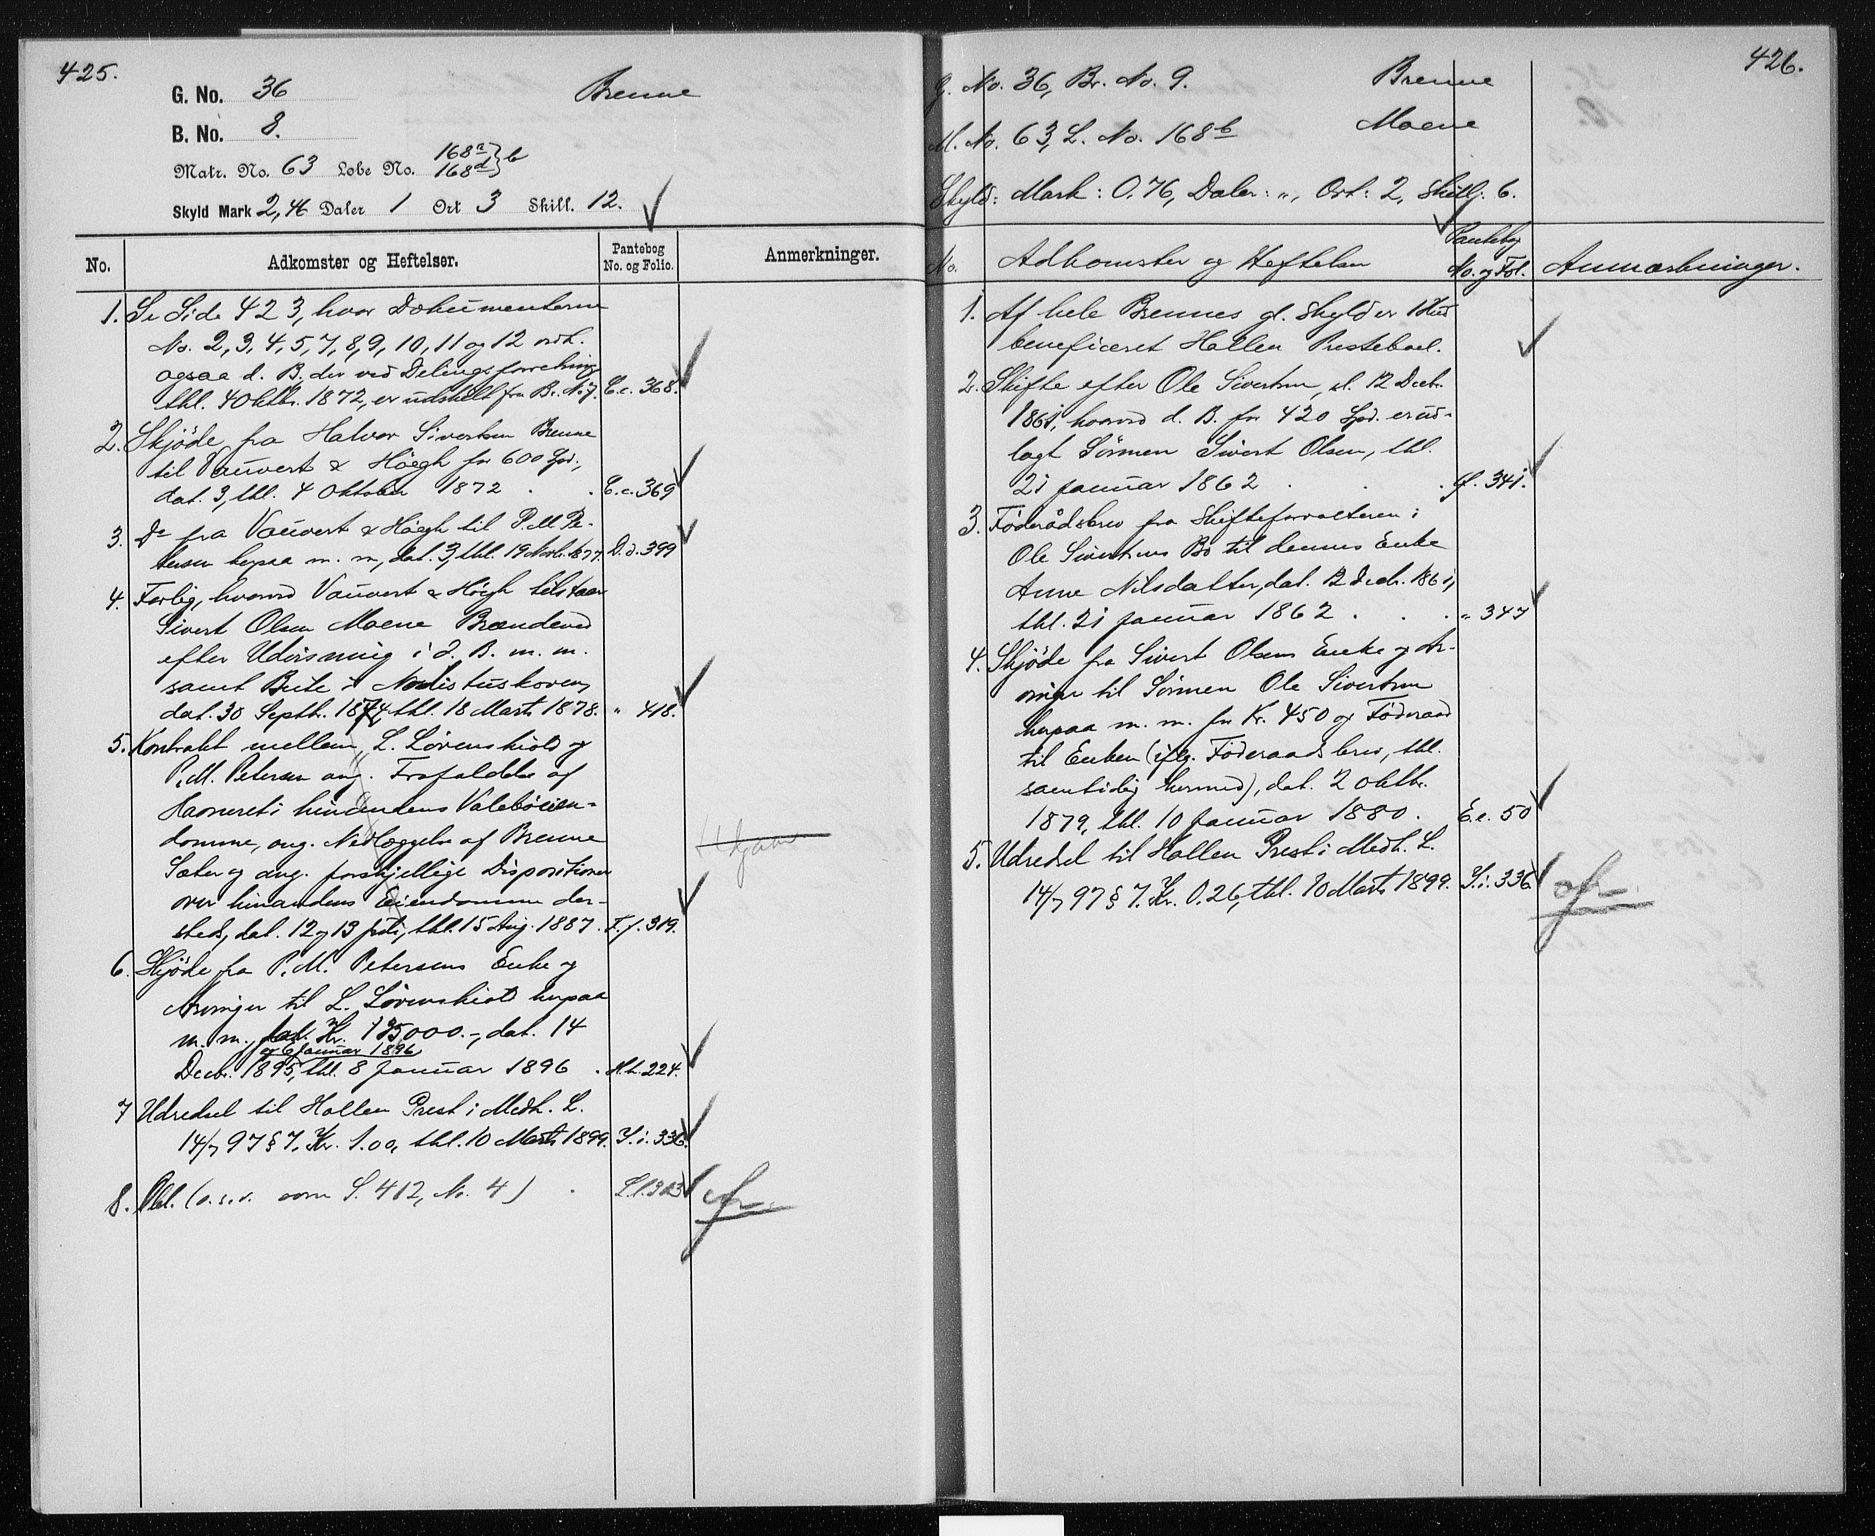 425.
G. No. 36
Brenne
B. No. 8.
Matr. No. 63 Lobe No. 168a 168d } b
Skyld Mark 2,46 Daler 1 Ort 3 Skill. 12.
No. Adkomster og Heftelser. Pantebog No. og Folio. Anmerkninger.
1. Se Side 423, hvor Dokumenterne
No. 2, 3, 4, 5, 7, 8, 9, 10, 11 og 12 vedk.
ogsaa d. B. der ved Delingsforretning
thl. 4 Oktbr. 1872, er udskilt fra B. No 7. C.c. 368.
2. Skjöde fra Halvor Sivertsen Brenne
til Vauvert & Höegh for 600 Spd.,
dat. 3, thl. 4 Oktober 1872 . . C.c. 369
3. Do fra Vauvert & Höegh til P. M. Pe-
tersen herpaa m. m, dat. 3, thl. 19 Novb. 1877. D.d. 399
4. Forlig, hvorved Vauvert & Högh tilstaar
Sivert Olsen Moene Brændeved
efter Udvisning i d. B. m. m.
samt Beite i
dat. 30 Septb. 1874, thl. 18 Marts 1878. " 418.
5. Kontrakt mellem L. Lövenskiold og
P. M. Petersen ang. Frafaldelse af
Havneret i hinandens Valeböeien-
domme, ang. Nedlæggelse af Brenne
Sæter og ang. forskjellige Dispositioner
over hinandens Eiendomme der-
steds, dat. 12 og 13 Juli, thl. 15 Aug. 1887. F.f. 319.
6. Skjöde fra P. M. Petersens Enke og
Arvinger til L. Lövenskiold herpaa
m. m. for Kr. 125000.-, dat. 14
og 6 Januar 1896
Decbr. 1895, thl. 8 Januar 1896 . H.h. 224.
7 Udredsel til Hollen Prest i Medh. L.
14/7 97 § 7. Kr. 1.00, thl. 10 Marts 1899. I.i. 336.
8. Obl. (o.s.v. som S. 412, No. 4) .
426.
G. No. 36, Br. No. 9. Brenne
M. No. 63, L. No. 168b Moene
Skyld: Mark: 0.76, Daler: ", Ort: 2, Skill: 6.
No. Adkomster og Heftelser Pantebog No. og Fol. Anmærkninger.
1. Af hele Brennes gl. Skyld er 1 Hud
beneficeret Hollen Presteboel.
2. Skifte efter Ole Sivertsen, sl. 12 Decbr.
1861, hvorved d. B. for 420 Spd. er ud-
lagt Sönnen Sivert Olsen, thl.
21 Januar 1862 . . . f. 341.
3. Föderådsbrev fra Skifteforvalteren i
Ole Sivertsens Bo til dennes Enke
Anne Nilsdatter, dat. 12 Decbr. 1861,
thl. 21 Januar 1862 . . . " 347
4. Skjöde fra Sivert Olsens Enke og Ar-
vinger til Sönnen Ole Sivertsen
herpaa m. m. for Kr. 450 og Föderaad
til Enken (iflg. Föderaadsbrev, thl.
samtidig hermed), dat. 2 Oktbr.
1879, thl. 10 Januar 1880. E.e. 50
5. Udredsel til Hollen Prest i Medh. L.
14/7 97 § 7. Kr. 0.26, thl. 10 Marts 1899. I.i. 336